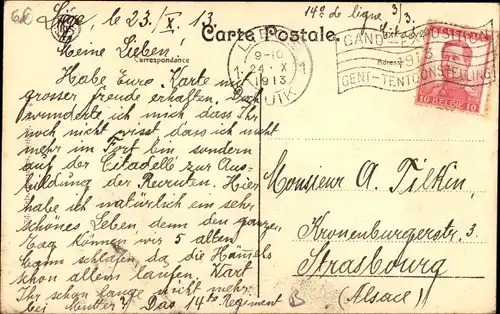 Liége, le 23./X. 13
14e de ligne 3/3.
Carte Postale.
Correspondance
Adresse
LIEGE
9-10
24 X
1913
LUIK
GAND EXPOSITION
1913
GENT-TENTOONSTELLING
10 BELGIE 10
Meine Lieben!
Habe Eure Karte mit
grosser Freude erhalten. Doch
wunderte ich mich dass Ihr
noch nicht wisst dass ich nicht
mehr im Fort bin sondern
auf der Citadelle zur Aus-
bildung der Recruten. Hier
habe ich natürlich ein sehr
schönes Leben, denn den ganzen
Tag können wir 5 alten
dann schlafen da die Hämels
schon allem laufen. Wart
Ihr schon lange nicht mehr
bei Mutter? Das 14te Regiment
Monsieur A. Tilkin,
Kronenburgerstr. 3.
Strasbourg
(Alsace)
B